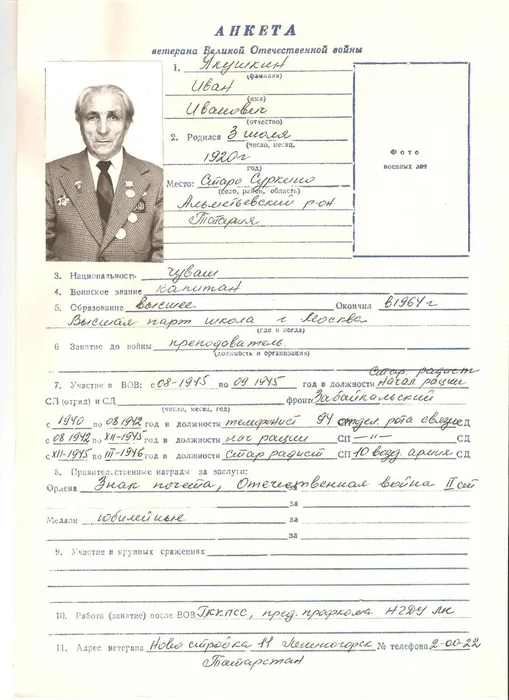 АНКЕТА
ветерана Великой Отечественной войны
1. Якушкин
(фамилия)
Иван
(имя)
Иванович
(отчество)
2. Родился 3 июля
(число, месяц,
1920г
год)
Место: Старо Суркено
(село, район, область)
Альметьевский р-он
Татария
Фото
военных лет
3. Национальность чуваш
4. Воинское звание капитан
5. Образование высшее Окончил в 1964 г
Высшая парт школа г Москва
(где и когда)
6 Занятие до войны преподователь.
(должность и организация)
Стар. радист
7. Участие в ВОВ: с 08-1945 по 09 1945 год в должности Начал рации
СП (отряд) и СД фронт Забайкальский
(число, месяц, год)
с 1940 по 08 1942 год в должности телефонист 94 отдел. рота связи СД
с 08 1942 по XII-1945 год в должности нач рации СП -"- СД
с XII-1945 по III-1946 год в должности стар радист СП 10 возд. армия СД
8. Правительственные награды за заслуги:
Ордена Знак почета, Отечественная война II ст
за
Медали юбилейные за
за
9. Участие в крупных сражениях
10. Работа (занятие) после ВОВ ГККПСС, пред. профкома НГДУ
11. Адрес ветерана Ново стройка 11 Лениногорск № телефона 2-00-22
Татарстан